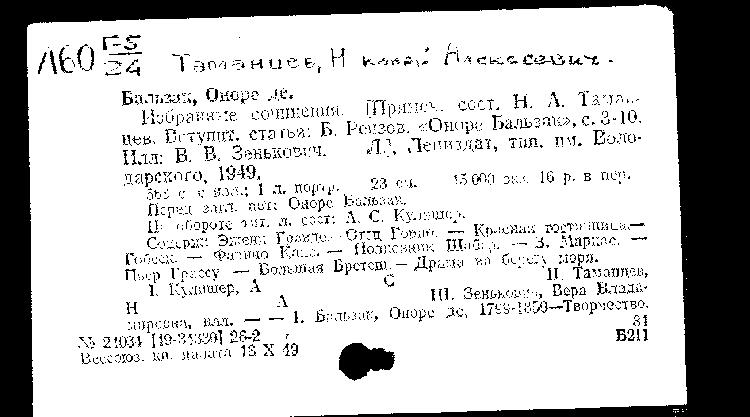 Л60 Г-5/24 Таманцев, Николай Алексеевич.
Бальзак, Оноре де.
Избранные сочинения. [Примеч. сост. Н. А. Таман-
цев. Вступит. статья: Б. Реизов. «Оноре Бальзак», с. 3-10.
Илл: В. В. Зенькович. Л], Лениздат, тип. им. Воло-
дарского, 1949.
с. с илл.; 1 л. портр. 23 см. 15 000 экз. 16 р. в пер.
Перед загл. авт: Оноре Бальзак.
На обороте тит. л. сост: А. С. Кулишер.
Содерж: Эжени Гранде.— Отец Горио. — Красная гостиница.—
Гобсек. — Фачино Кане. — Полковник Шабер. — З. Маркас. —
Пьер Грассу — Большая Бретеш.— Драма на берегу моря.
I. Кулишер, А С II. Таманцев,
Н А III. Зенькович, Вера Влади-
мировна, илл. — — 1. Бальзак, Оноре де, 1799-1850—Творчество.
№ 21034 [49-34330] 26-2 31
Всесоюз. кн. палата 18 X 49 Б211